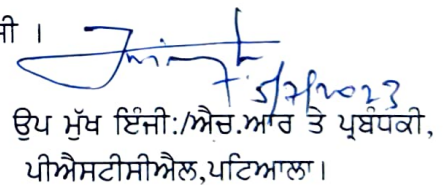 ਸੀ ।
5/7/2023
ਉਪ ਮੁੱਖ ਇੰਜੀ:/ਐਚ.ਆਰ ਤੇ ਪ੍ਰਬੰਧਕੀ,
ਪੀਐਸਟੀਸੀਐਲ,ਪਟਿਆਲਾ।